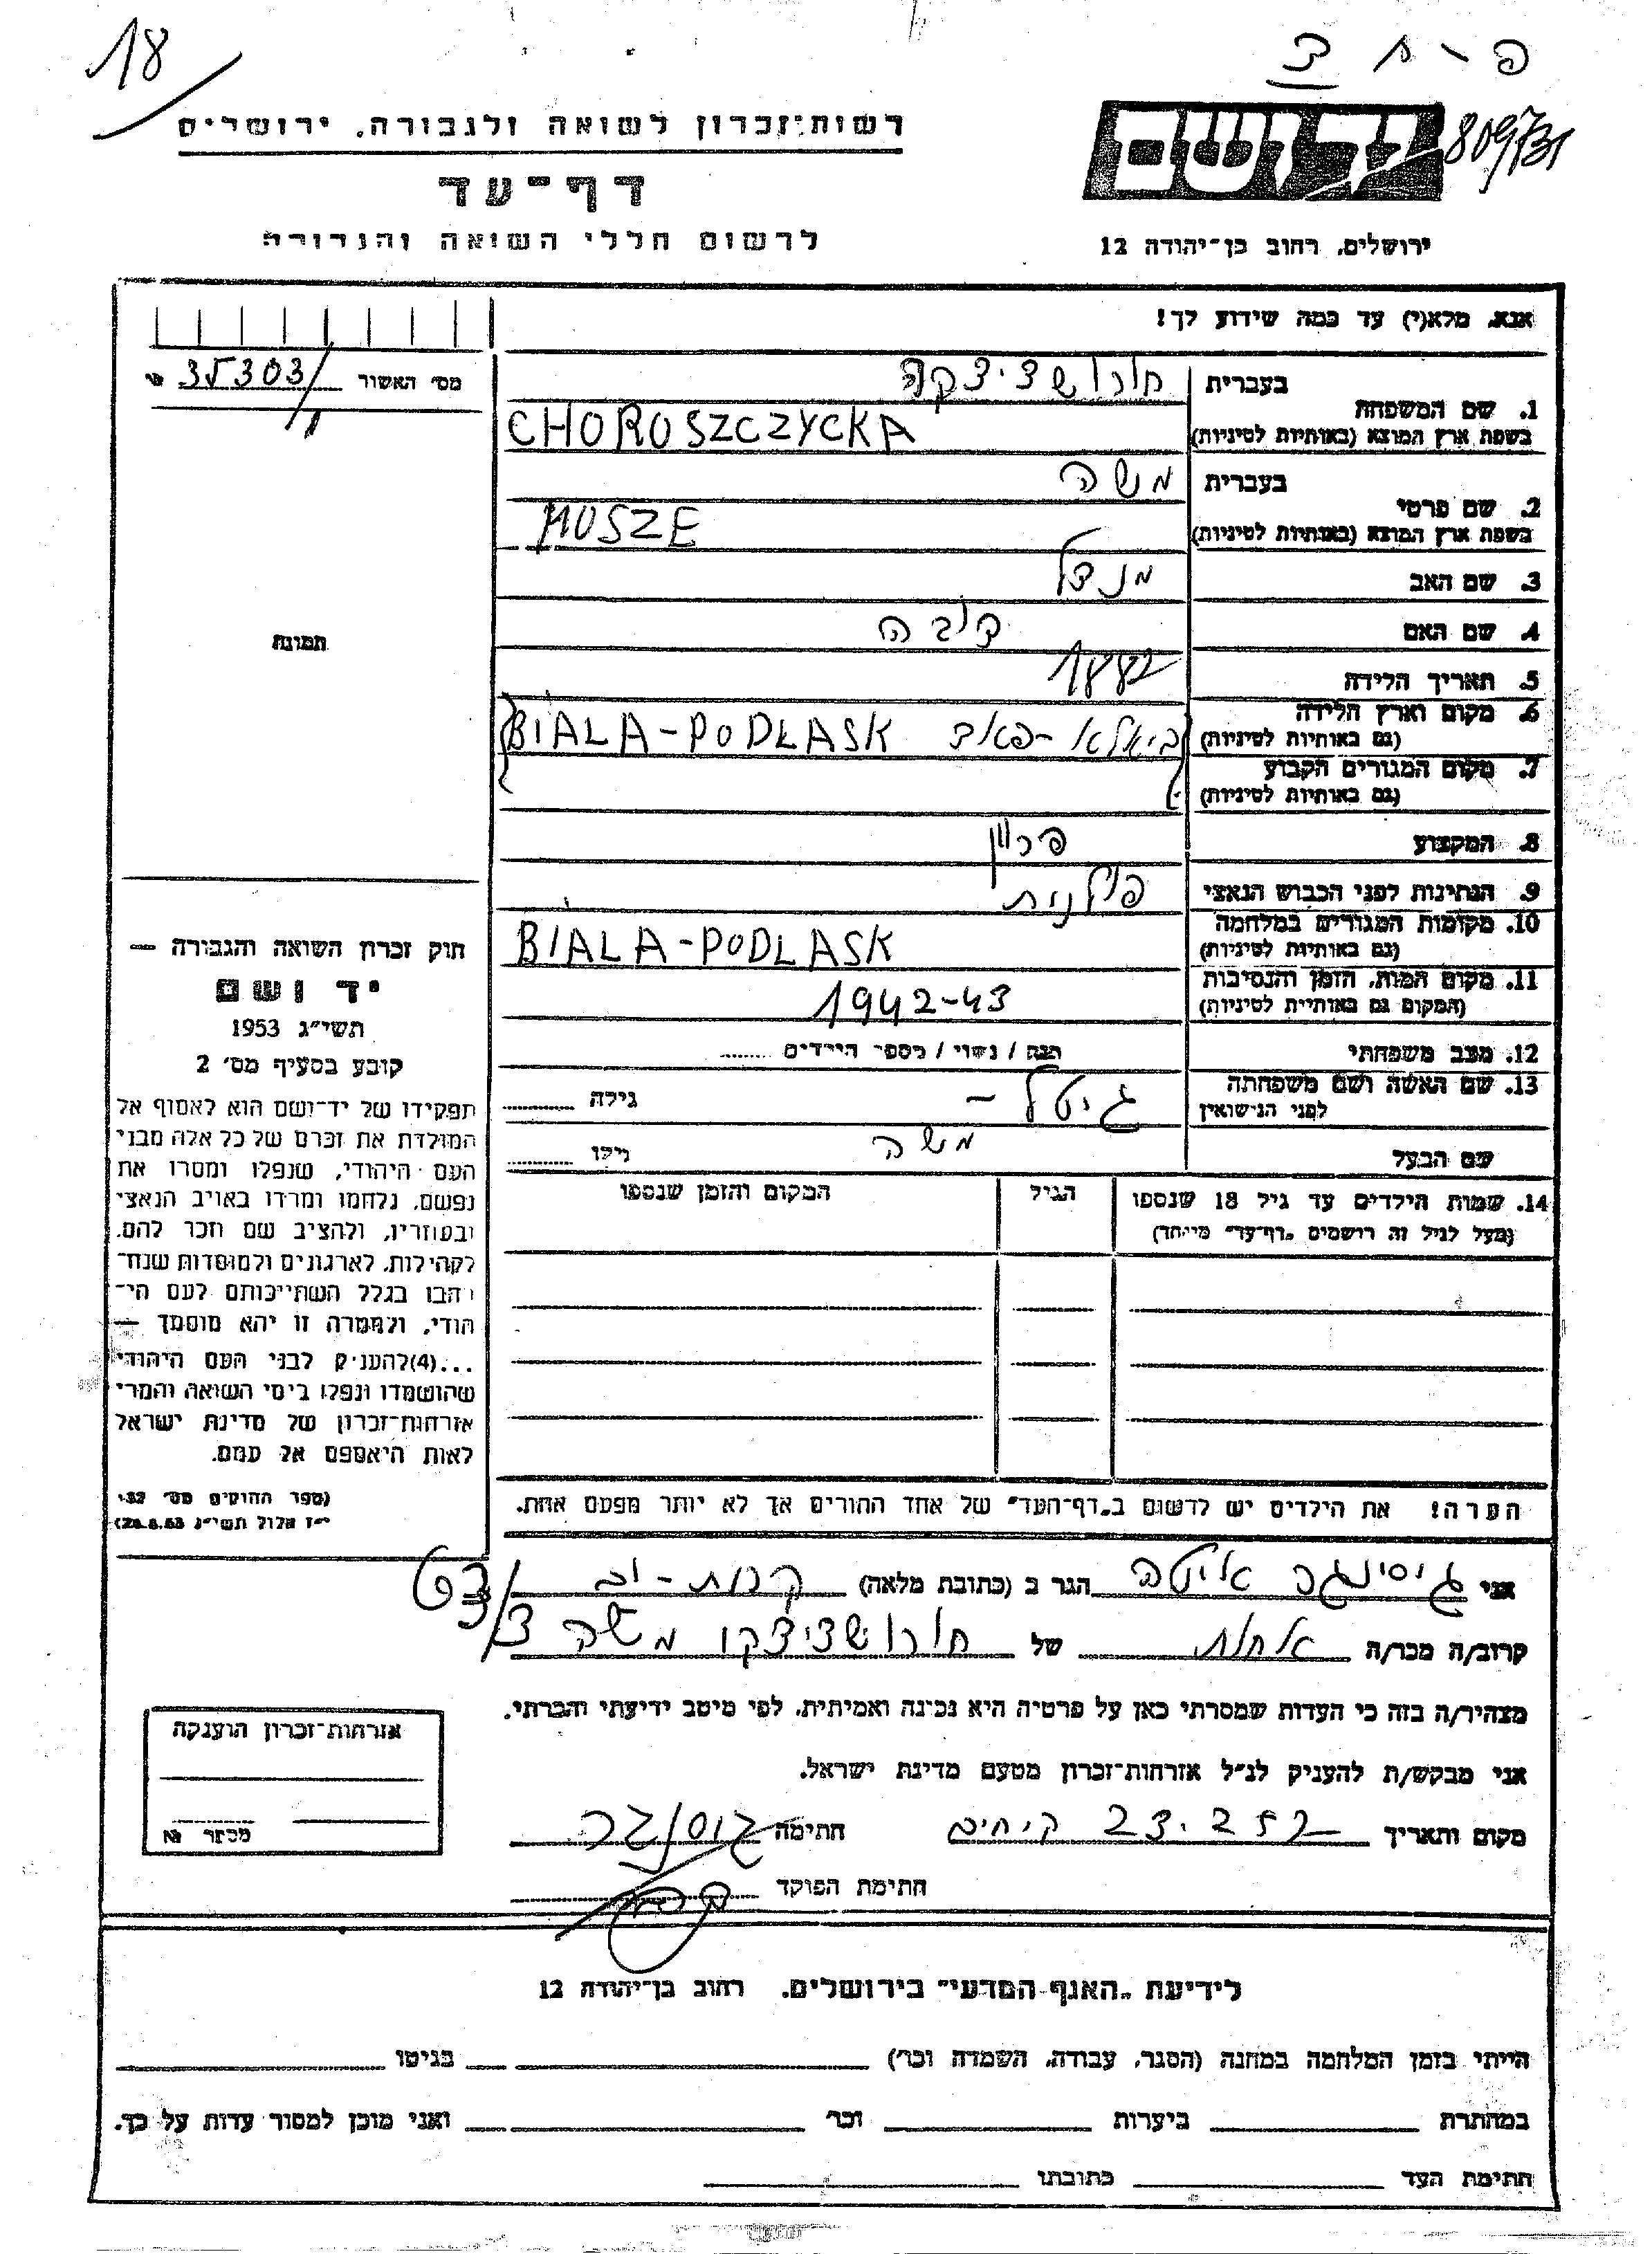 18
רשות־זכרון לשואה ולגבורה, ירושלים
יד ושם
809/31
דף־עד
לרשום חללי השואה והגבורה
ירושלים, רחוב בן־יהודה 12
אנא, מלא(י) עד כמה שידוע לך!
מס׳ האשור 35303
1. שם המשפחה
בעברית חורושציצקה
בשפת ארץ המוצא (באותיות לטיניות) CHOROSZCZYCKA
2. שם פרטי
בעברית משה
בשפת ארץ המוצא (באותיות לטיניות) MOSZE
3. שם האב מנדל
4. שם האם
5. תאריך הלידה 1882
6. מקום וארץ הלידה
(גם באותיות לטיניות) ביאלא-פאד BIALA-PODLASK
7. מקום המגורים הקבוע
(גם באותיות לטיניות)
8. המקצוע
9. הנתינות לפני הכבוש הנאצי פולנית
10. מקומות המגורים במלחמה
(גם באותיות לטיניות) BIALA-PODLASK
11. מקום המות, הזמן והנסיבות
(המקום גם באותיות לטיניות) 1942-43
12. מצב משפחתי רוק / נשוי / מספר הילדים
13. שם האשה ושם משפחתה
לפני הנישואין גיטל - גילה
שם הבעל משה גילו
14. שמות הילדים עד גיל 18 שנספו
(מעל לגיל זה רושמים „דף־עד״ מיוחד)
הגיל
המקום והזמן שנספו
הערה! את הילדים יש לרשום ב„דף־העד״ של אחד ההורים אך לא יותר מפעם אחת.
תמונה
חוק זכרון השואה והגבורה —
יד ושם
תשי״ג 1953
קובע בסעיף מס׳ 2
תפקידו של יד־ושם הוא לאסוף אל
המולדת את זכרם של כל אלה מבני
העם היהודי, שנפלו ומסרו את
נפשם, נלחמו ומרדו באויב הנאצי
ובעוזריו, ולהציב שם וזכר להם,
לקהילות, לארגונים ולמוסדות שנח־
רבו בגלל השתייכותם לעם הי־
הודי, ולמטרה זו יהא מוסמך —
...(4)להעניק לבני העם היהודי
שהושמדו ונפלו בימי השואה והמרי
אזרחות־זכרון של מדינת ישראל
לאות היאספם אל עמם.
(ספר החוקים מס׳ 132,
י״ז אלול תשי״ג 28.8.53)
אני איטה הגר ב (כתובת מלאה)
קרוב/ה מכר/ה של חורושציצקו משה
מצהיר/ה בזה כי העדות שמסרתי כאן על פרטיה היא נכונה ואמיתית, לפי מיטב ידיעתי והכרתי.
אני מבקש/ת להעניק לנ״ל אזרחות־זכרון מטעם מדינת ישראל.
מקום ותאריך חתימה
חתימת הפוקד
אזרחות־זכרון הוענקה
מכתב №
לידיעת „האגף המדעי״ בירושלים, רחוב בן־יהודה 12
הייתי בזמן המלחמה במחנה (הסגר, עבודה, השמדה וכר׳) בגיטו
במחתרת ביערות וכר׳ ואני מוכן למסור עדות על כך.
חתימת העד כתובתו